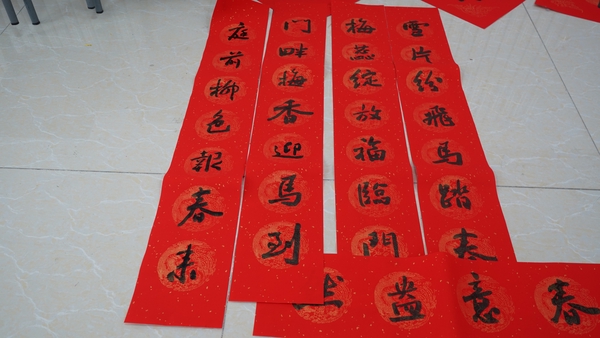 雪片纷飛馬踏春
梅蕊绽放福臨門
门畔梅香迎馬到
庭前柳色報春来
春意盎然